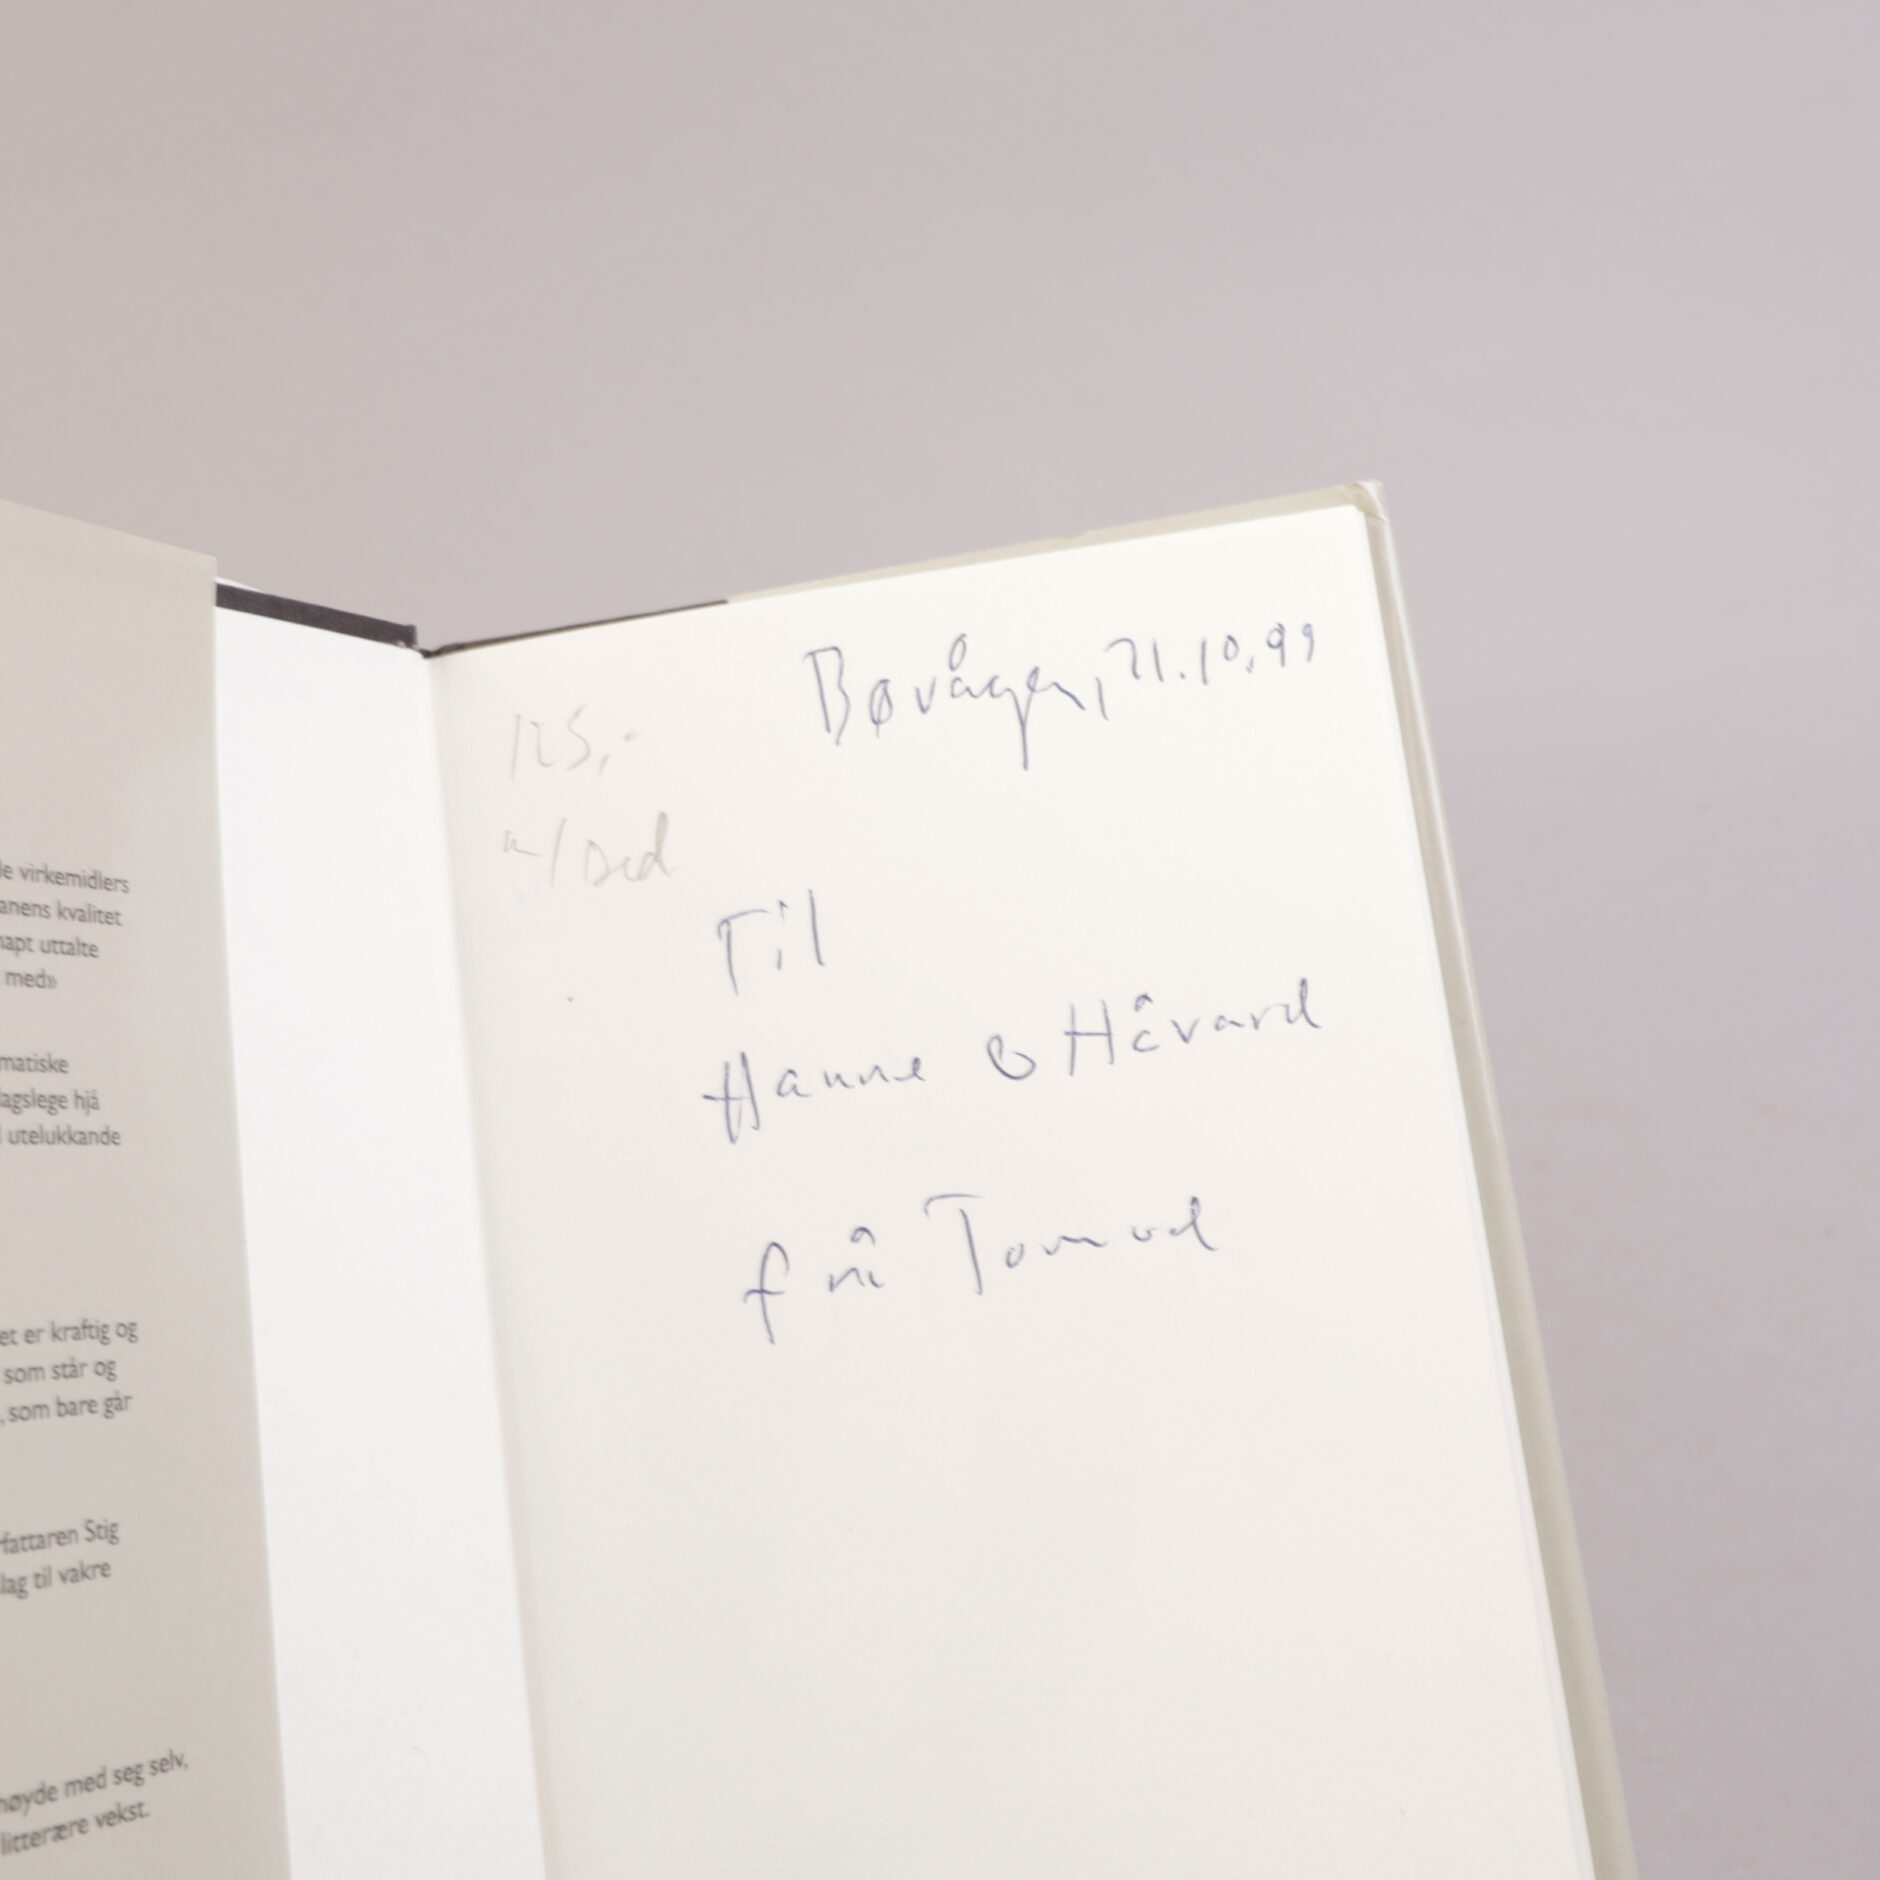 le virkemidlers
anens kvalitet
napt uttalte
med»
matiske
lagslege hjå
utelukkande
et er kraftig og
som står og
, som bare går
fattaren Stig
lag til vakre
høyde med seg selv,
litterære vekst.
125,-
m/ Ded
Bøvågen, 21.10.99
Til
Hanne & Håvard
frå Tormod